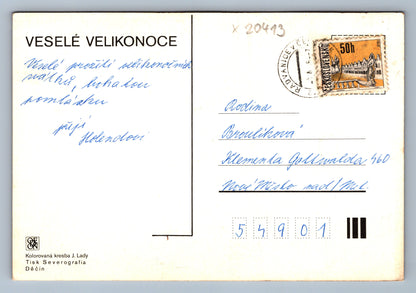 x 20413
VESELÉ VELIKONOCE
Veselé prožití velikonočních
svátků, bohatou
pomlázku
přejí
Holendovi
50h
ČESKOSLOVENSKO
Rodina
Broulíková
Klementa Gottwalda 460
Nové Město nad/Met.
54901
Kolorovaná kresba J. Lady
Tisk Severografia
Děčín